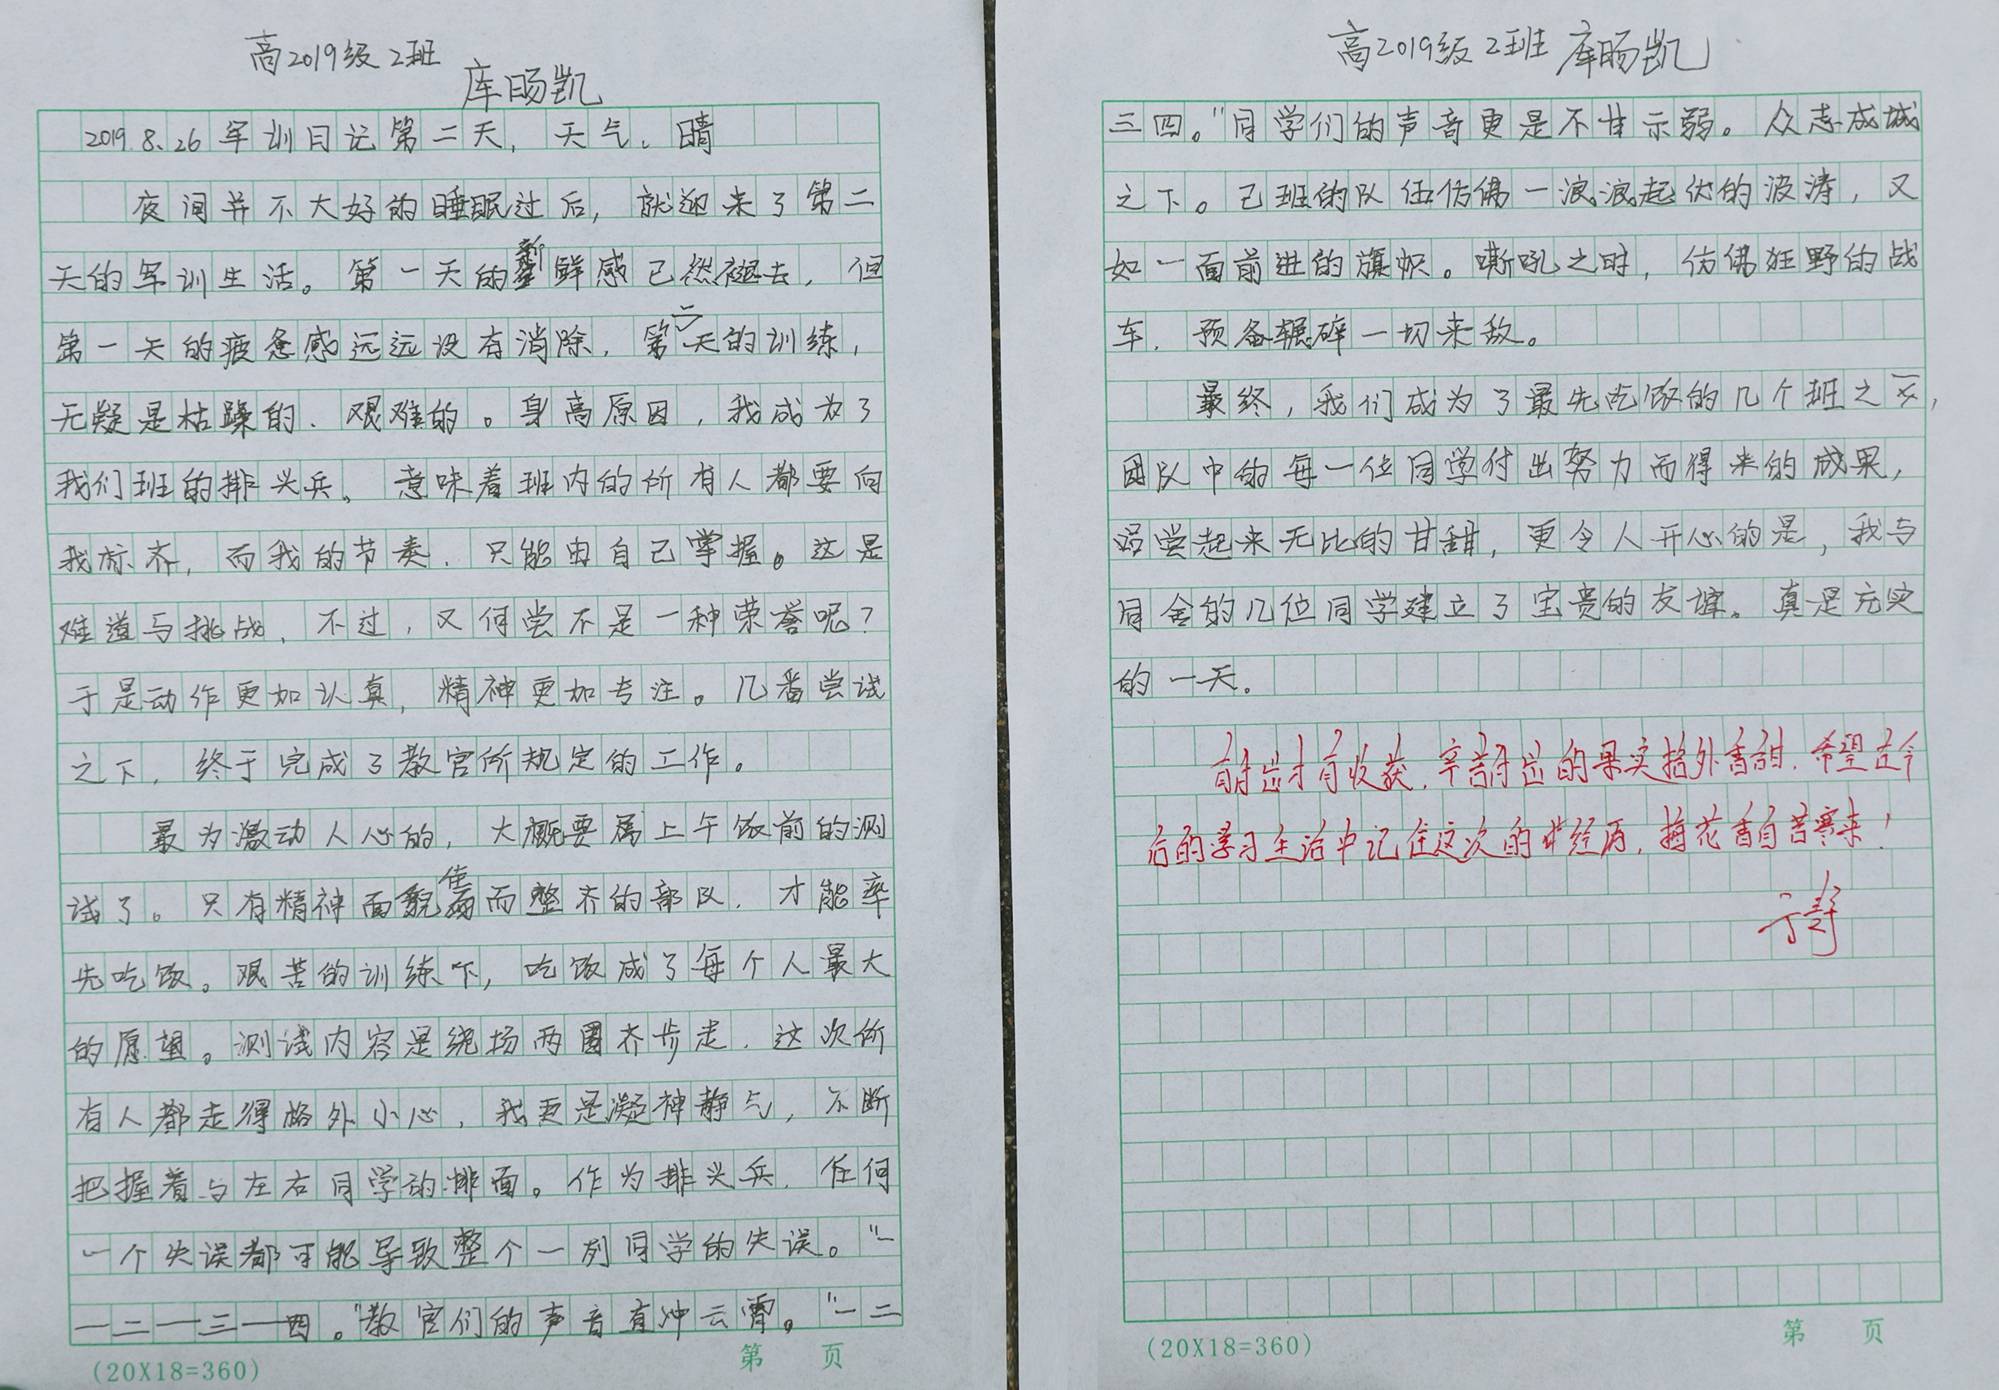 高2019级2班
库旸凯
2019.8.26军训日记第二天，天气、晴
夜间并不大好的睡眠过后，就迎来了第二
天的军训生活。第一天的新鲜感已然褪去，但
第一天的疲惫感远远没有消除，第二天的训练，
无疑是枯躁的、艰难的。身高原因，我成为了
我们班的排头兵，意味着班内的所有人都要向
我标齐，而我的节奏，只能由自己掌握。这是
难道与挑战，不过，又何尝不是一种荣誉呢？
于是动作更加认真，精神更加专注。几番尝试
之下，终于完成了教官所规定的工作。
最为激动人心的，大概要属上午饭前的测
试了。只有精神面貌佳而整齐的部队，才能率
先吃饭。艰苦的训练下，吃饭成了每个人最大
的愿望。测试内容是绕场两圈齐步走，这次所
有人都走得格外小心，我更是凝神静气，不断
把握着与左右同学的排面。作为排头兵，任何
一个失误都可能导致整个一列同学的失误。“一
一二一三一四。”教官们的声音直冲云霄。“一二
高2019级2班 库旸凯
三四。”同学们的声音更是不甘示弱。众志成城
之下。己班的队伍仿佛一浪浪起伏的波涛，又
如一面前进的旗帜。嘶吼之时，仿佛狂野的战
车，预备辗碎一切来敌。
最终，我们成为了最先吃饭的几个班之一，
团队中的每一位同学付出努力而得来的成果，
品尝起来无比的甘甜，更令人开心的是，我与
同舍的几位同学建立了宝贵的友谊。真是充实
的一天。
有付出才有收获，辛苦付出的果实格外香甜，希望在今
后的学习生活中记住这次的经历，梅花香自苦寒来！
(20X18=360)
第 页
(20X18=360)
第 页